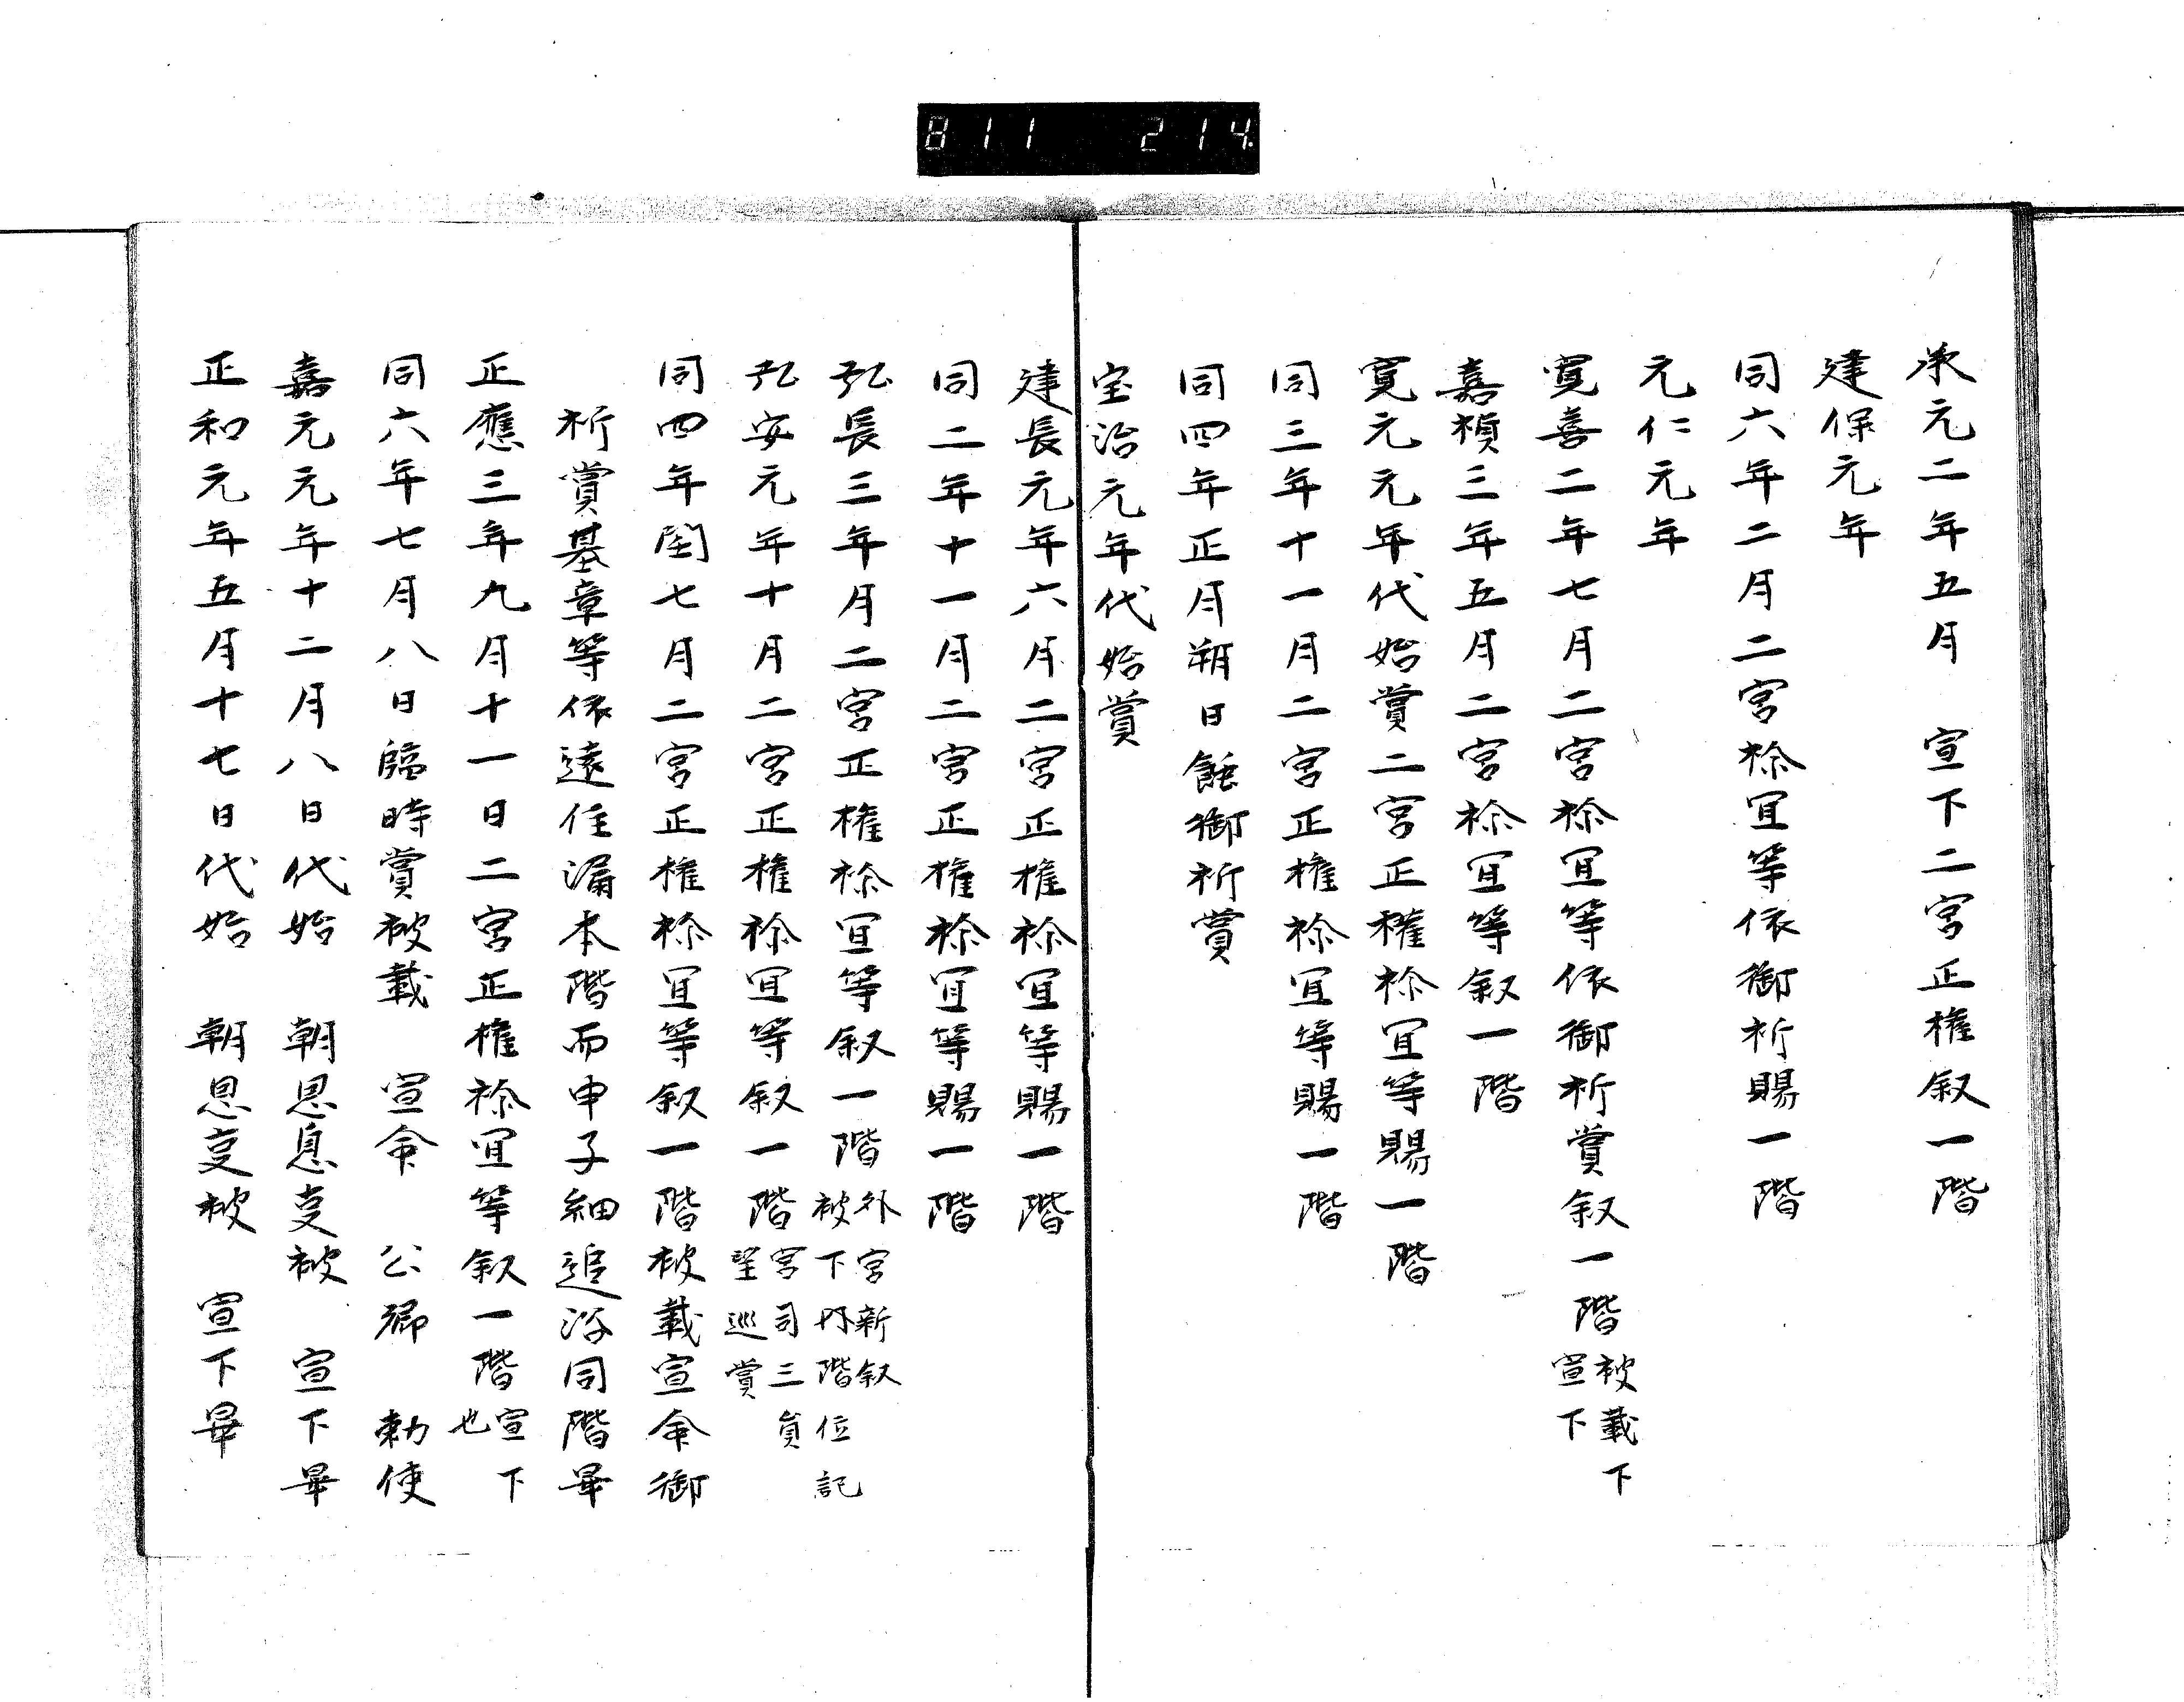 811 214
承元二年五月　宣下二宮正権叙一階
建保元年
同六年二月二宮祢冝等依御祈賜一階
元仁元年
寛喜二年七月二宮祢冝等依御祈賞叙一階被載下宣下
嘉禎三年五月二宮祢冝等叙一階
寛元元年代始賞二宮正権祢冝等賜一階
同三年十一月二宮正権祢冝等賜一階
同四年正月朔日蝕御祈賞
宝治元年代始賞
建長元年六月二宮正権祢冝等賜一階
同二年十一月二宮正権祢冝等賜一階
弘長三年月二宮正権祢冝等叙一階外宮新叙被下内階位記
弘安元年十月二宮正権祢冝等叙一階宮司三員望巡賞
同四年閏七月二宮正権祢冝等叙一階被載宣命御
祈賞基章等依遠任漏本階而申子細追浴同階畢
正應三年九月十一日二宮正権祢冝等叙一階宣下也
同六年七月八日臨時賞被載　宣命　公卿　勅使
嘉元元年十二月八日代始　朝恩息叓被　宣下畢
正和元年五月十七日代始　朝恩叓被　宣下畢